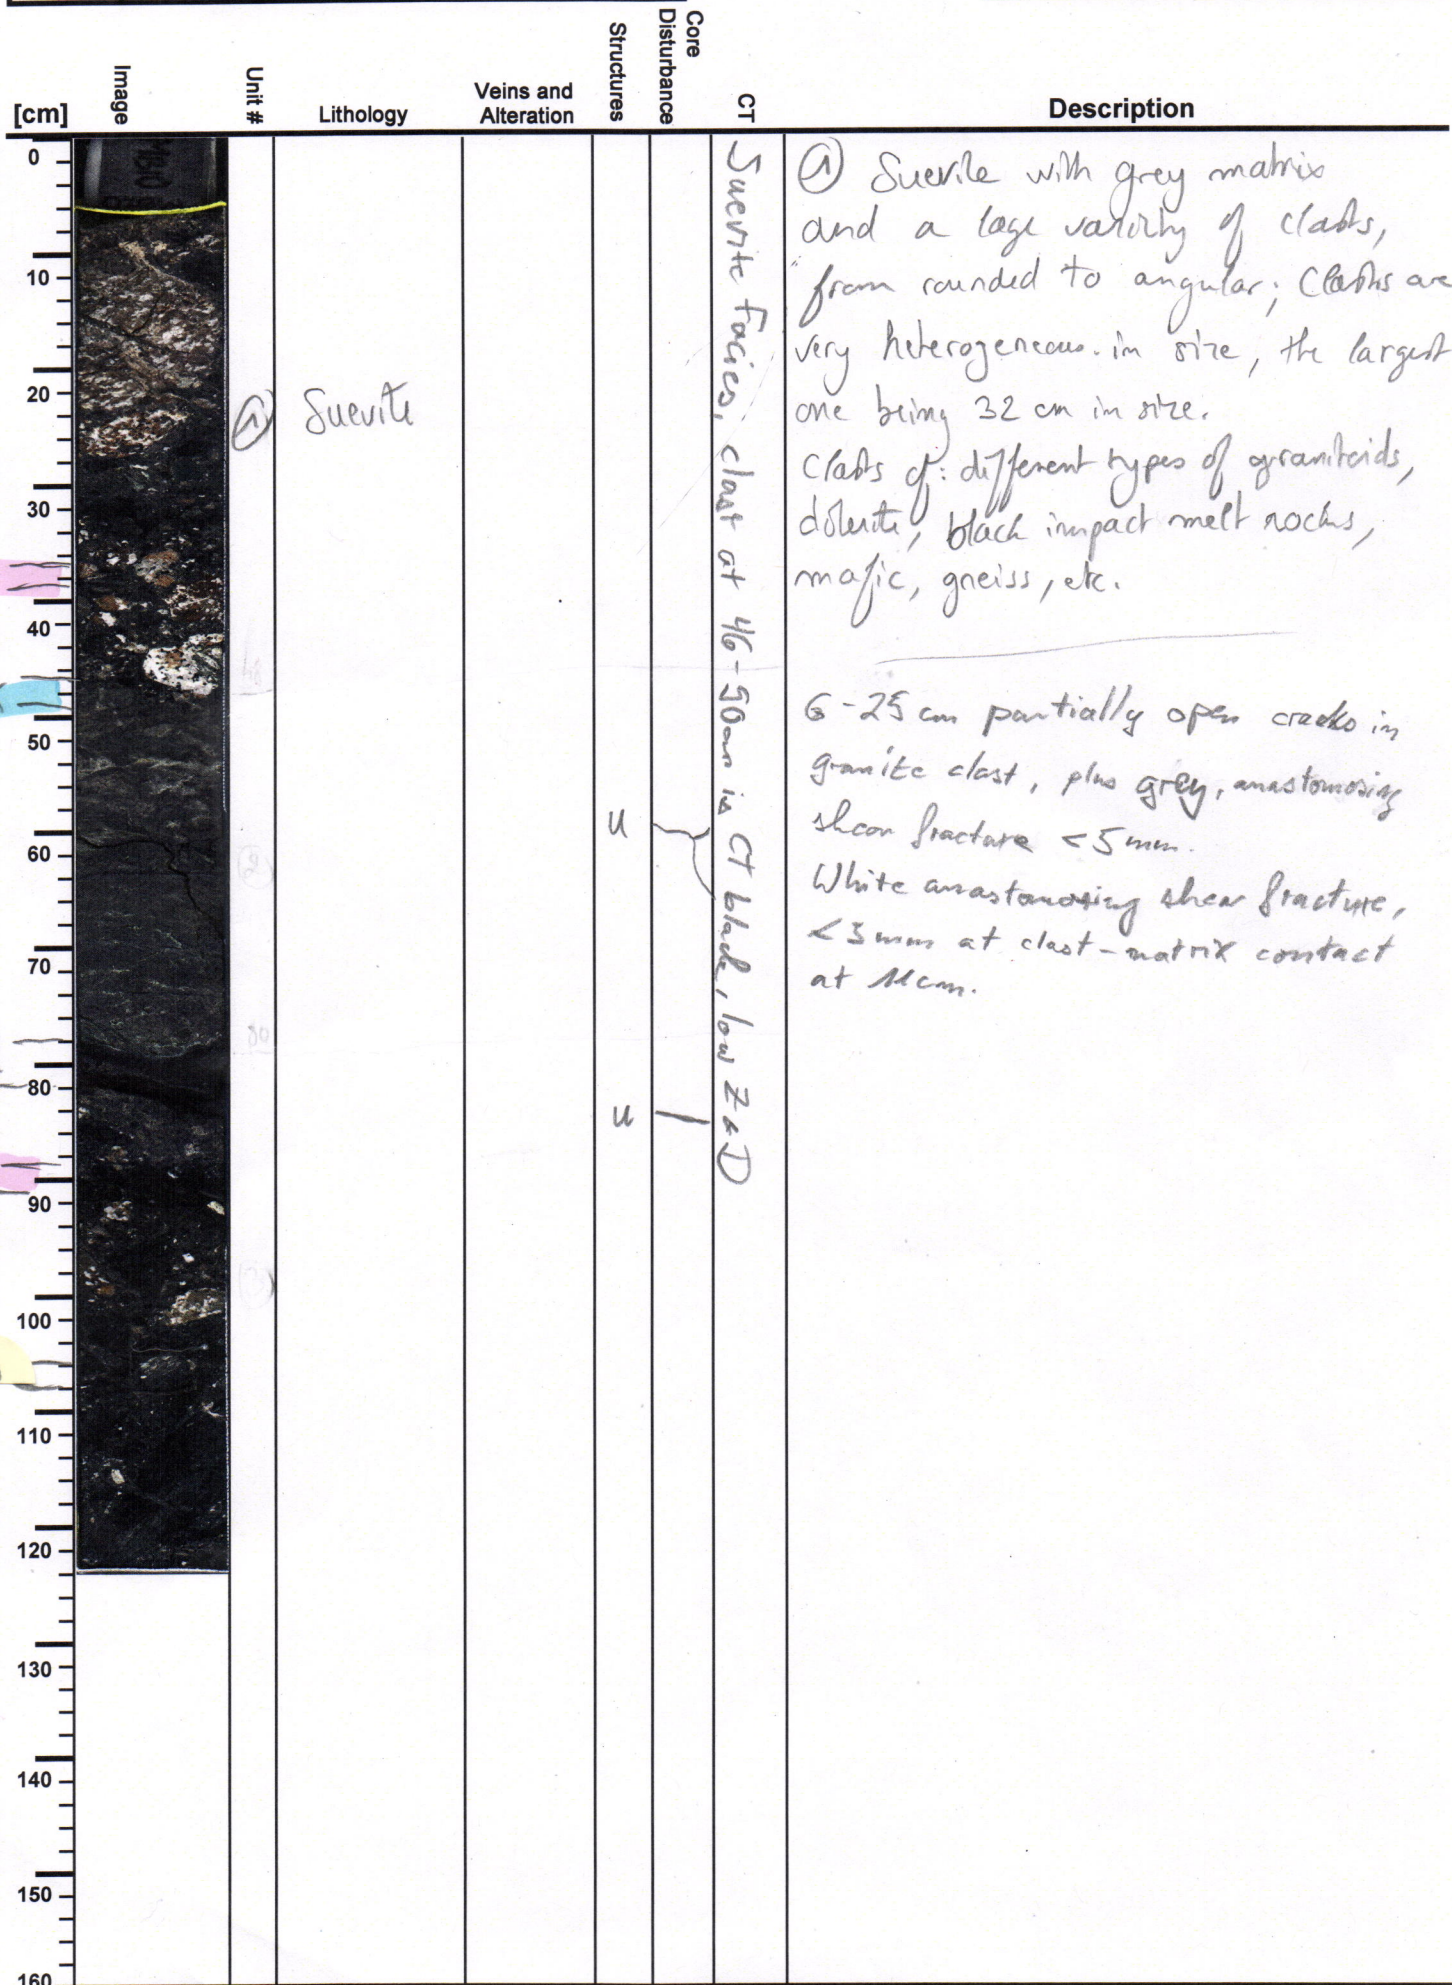 [cm]
Image
Unit #
Lithology
Veins and
Alteration
Structures
Core
Disturbance
CT
Description
0
10
20
30
40
50
60
70
80
90
100
110
120
130
140
150
160
① Suevite
U
U
Suevite facies, clast at 46-50cm is CT black, low Z & D
① Suevite with grey matrix
and a lage variety of clasts,
from rounded to angular; Clasts are
very heterogeneous in size, the largest
one being 32 cm in size.
Clasts of: different types of granitoids,
dolerite, black impact melt rocks,
mafic, gneiss, etc.
6-25 cm partially open cracks in
granite clast, plus grey, anastomosing
shear fracture <5mm.
White anastomosing shear fracture,
<3mm at clast-matrix contact
at 11cm.